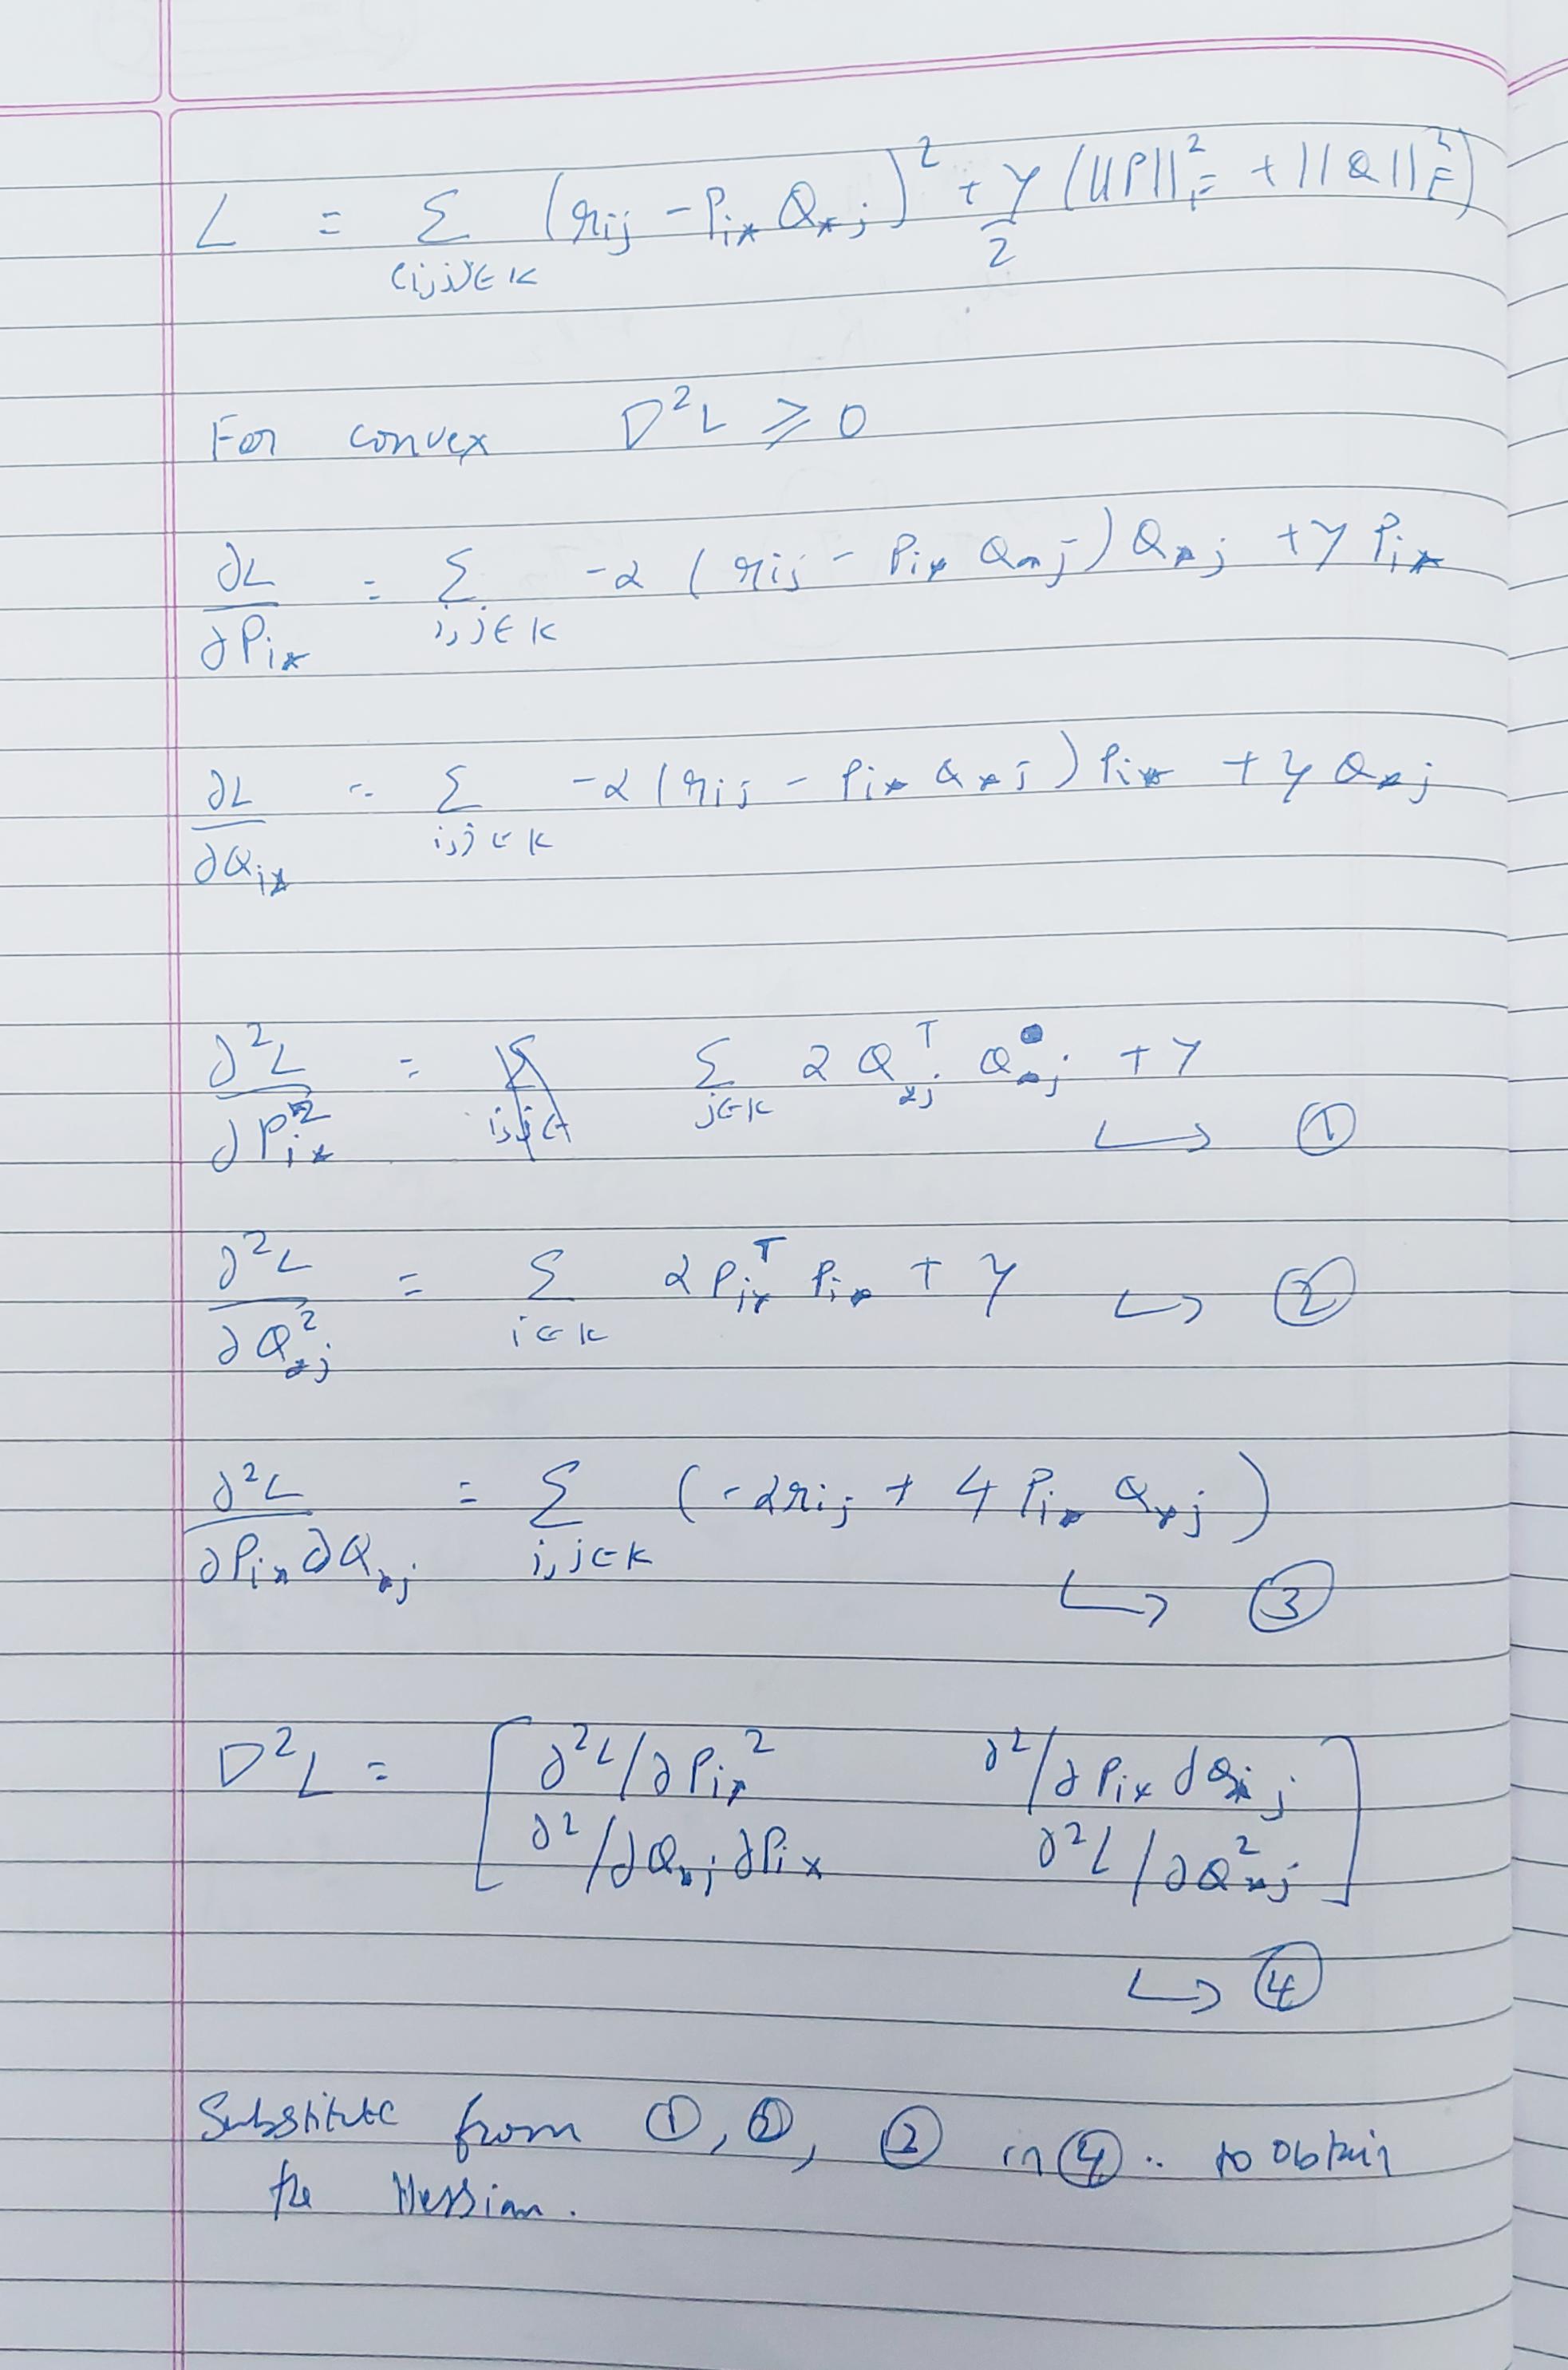 L = Σ (rij - Pi* Q*j)² + γ/2 (||P||²F + ||Q||²F)
(i,j)∈K
For convex ∇²L ≥ 0
∂L/∂Pi* = Σ -2 (rij - Pi* Q*j) Q*j + γ Pi*
i,j∈K
∂L/∂Qi* = Σ -2 (rij - Pi* Q*j) Pi* + γ Q*j
i,j∈K
∂²L/∂Pi*² = Σ 2 Q*jᵀ Q*j + γ
j∈K
↳ ①
∂²L/∂Q*j² = Σ 2 Pi*ᵀ Pi* + γ ↳ ②
i∈K
∂²L/∂Pi*∂Q*j = Σ (-2rij + 4 Pi* Q*j)
i,j∈K
↳ ③
∇²L = [ ∂²L/∂Pi*² ∂²/∂Pi*∂Q*j
∂²/∂Q*j∂Pi* ∂²L/∂Q*j² ]
↳ ④
Substitute from ①, ②, in ④ .. to obtain
the Hessian.